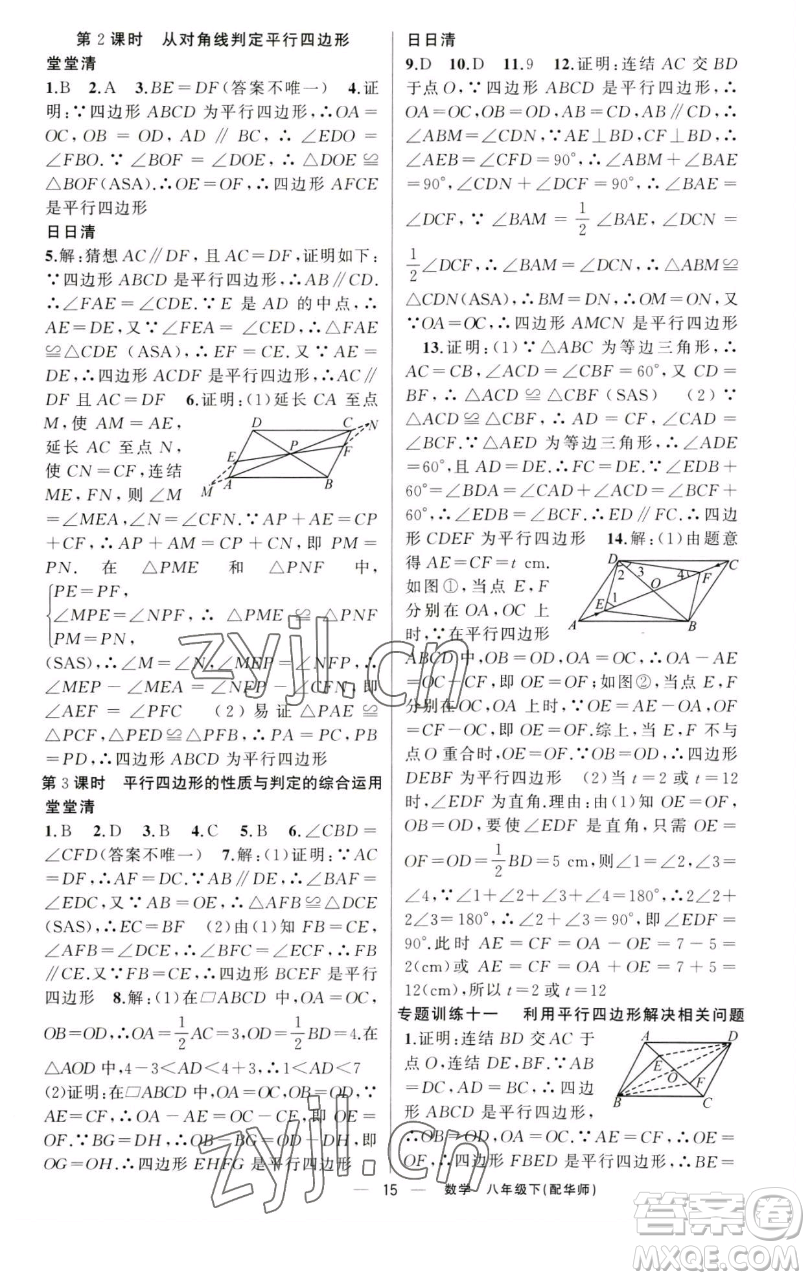 第 2 课时　从对角线判定平行四边形
堂堂清
1.B　2.A　3.BE=DF(答案不唯一)　4.证
明:∵四边形 ABCD 为平行四边形,∴OA=
OC,OB = OD, AD ∥ BC, ∴ ∠EDO =
∠FBO.∵∠BOF=∠DOE,∴△DOE≌
△BOF(ASA).∴OE=OF,∴四边形 AFCE
是平行四边形
日日清
5.解:猜想 AC∥DF,且 AC=DF,证明如下:
∵四边形 ABCD 是平行四边形,∴AB∥CD.
∴∠FAE=∠CDE.∵E 是 AD 的中点,∴
AE=DE,又∵∠FEA=∠CED,∴△FAE
≌△CDE (ASA),∴EF=CE.又∵AE=
DE,∴四边形 ACDF 是平行四边形,∴AC∥
DF,AC=DF　6.证明:(1)延长 CA 至点
M,使 AM=AE,
延长 AC 至点 N,
使 CN=CF,连结
ME,FN,则∠M
D C N E P F M A B
=∠MEA,∠N=∠CFN.∵AP+AE=CP
+CF,∴AP+AM=CP+CN,即 PM=
PN. 在 △PME 和 △PNF 中,
{PE=PF,
∠MPE=∠NPF, ∴ △PME ≌ △PNF
PM=PN,
(SAS),∴∠M=∠N,∴∠MEP=∠NFP,∴
∠MEP－∠MEA=∠NFP－∠CFN,即
∠AEF = ∠PFC　(2) 易证 △PAE ≌
△PCF,△PED≌△PFB,∴PA=PC,PB
=PD,∴四边形 ABCD 为平行四边形
第 3 课时　平行四边形的性质与判定的综合运用
堂堂清
1.B　2.D　3.B　4.C　5.B　6.∠CBD=
∠CFD(答案不唯一)　7.解:(1)证明:∵AC
=DF,∴AF=DC.∵AB∥DE,∴∠BAF=
∠EDC,又∵AB=OE,∴△AFB≌△DCE
(SAS),∴EC=BF　(2)由(1)知 FB=CE,
∠AFB=∠DCE,∴∠BFC=∠ECF,∴FB
∥CE.又∵FB=CE,∴四边形 BCEF 是平行
四边形　8.解:(1)在▱ABCD 中,OA=OC,
OB=OD,∴OA=1/2AC=3,OD=1/2BD=4.在
△AOD 中,4－3<AD<4+3,∴1<AD<7
(2)证明:在▱ABCD 中,OA=OC,OB=OD,∵
AE=CF,∴OA－AE=OC－CF,即 OE=
OF.∵BG=DH,∴OB－BG=OD－DH,即
OG=OH.∴四边形 EHFG 是平行四边形
日日清
9.D　10.D　11.9　12.证明:连结 AC 交 BD
于点 O,∵四边形 ABCD 是平行四边形,∴
OA=OC,OB=OD,AB=CD,AB∥CD.∴
∠ABM=∠CDN,∵AE⊥BD,CF⊥BD,∴
∠AEB=∠CFD=90°,∠ABM+∠BAE
=90°,∠CDN+∠DCF=90°,∴∠BAE=
∠DCF,∵∠BAM=1/2∠BAE,∠DCN=
1/2∠DCF,∴∠BAM=∠DCN,∴△ABM≌
△CDN(ASA),∴BM=DN,∴OM=ON,又
∵OA=OC,∴四边形 AMCN 是平行四边形
13.证明:(1)∵△ABC 为等边三角形,∴
AC=CB,∠ACD=∠CBF=60°,又 CD=
BF,∴△ACD≌△CBF(SAS)　(2)∵
△ACD≌△CBF,∴AD=CF,∠CAD=
∠BCF.∵△AED 为等边三角形,∴∠ADE
=60°,且 AD=DE.∴FC=DE.∵∠EDB+
60°=∠BDA=∠CAD+∠ACD=∠BCF+
60°,∴∠EDB=∠BCF.∴ED∥FC.∴四边
形 CDEF 为平行四边形　14.解:(1)由题意
得 AE=CF=t cm.
如图①,当点 E,F
分别在 OA,OC 上
时,∵在平行四边形
D 2 3 4 C F O E 1 A B
ABCD 中,OB=OD,AO=CO,∴OA－AE
=CO－CF,即 OE=OF;如图②,当点 E,F
分别在 OC,OA 上时,∵OE=AE－OA,OF
=CF－OC,∴OE=OF.综上,当 E,F 不与
点 O 重合时,OE=OF.∵OB=OD,∴四边形
DEBF 为平行四边形　(2)当 t=2 或 t=12
时,∠EDF 为直角.理由:由(1)知 OE=OF,
OB=OD,要使∠EDF 是直角,只需 OE=
OF=OD=1/2BD=5 cm,则∠1=∠2,∠3=
∠4,∵∠1+∠2+∠3+∠4=180°,∴2∠2+
2∠3=180°,∴∠2+∠3=90°,即∠EDF=
90°.此时 AE=CF=OA－OE=7－5=
2(cm)或 AE=CF=OA+OE=7+5=
12(cm),所以 t=2 或 t=12
专题训练十一　利用平行四边形解决相关问题
1.证明:连结 BD 交 AC 于
点 O,连结 BE,DF,∵AB
=DC,AD=BC,∴四边
形 ABCD 是平行四边形,
A D E O F B C
∴OB=OD,OA=OC.又∵AF=CE,∴AF
－EF=CE－EF,即 AE=CF,∴OA－AE=
— 15 — 数学　八年级下(配华师)
zyjl.cn
zyjl.cn
答案圈
MXQE.COM